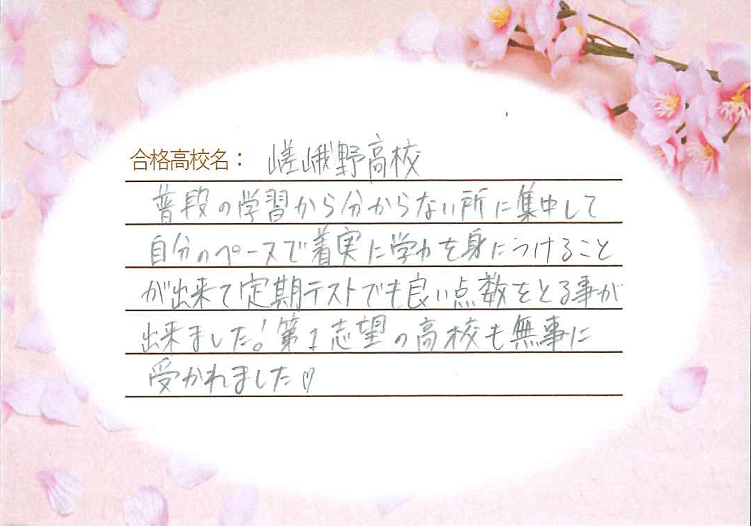 合格高校名： 嵯峨野高校
普段の学習から分からない所に集中して
自分のペースで着実に学力を身につけること
が出来て定期テストでも良い点数をとる事が
出来ました！第1志望の高校も無事に
受かれました♡